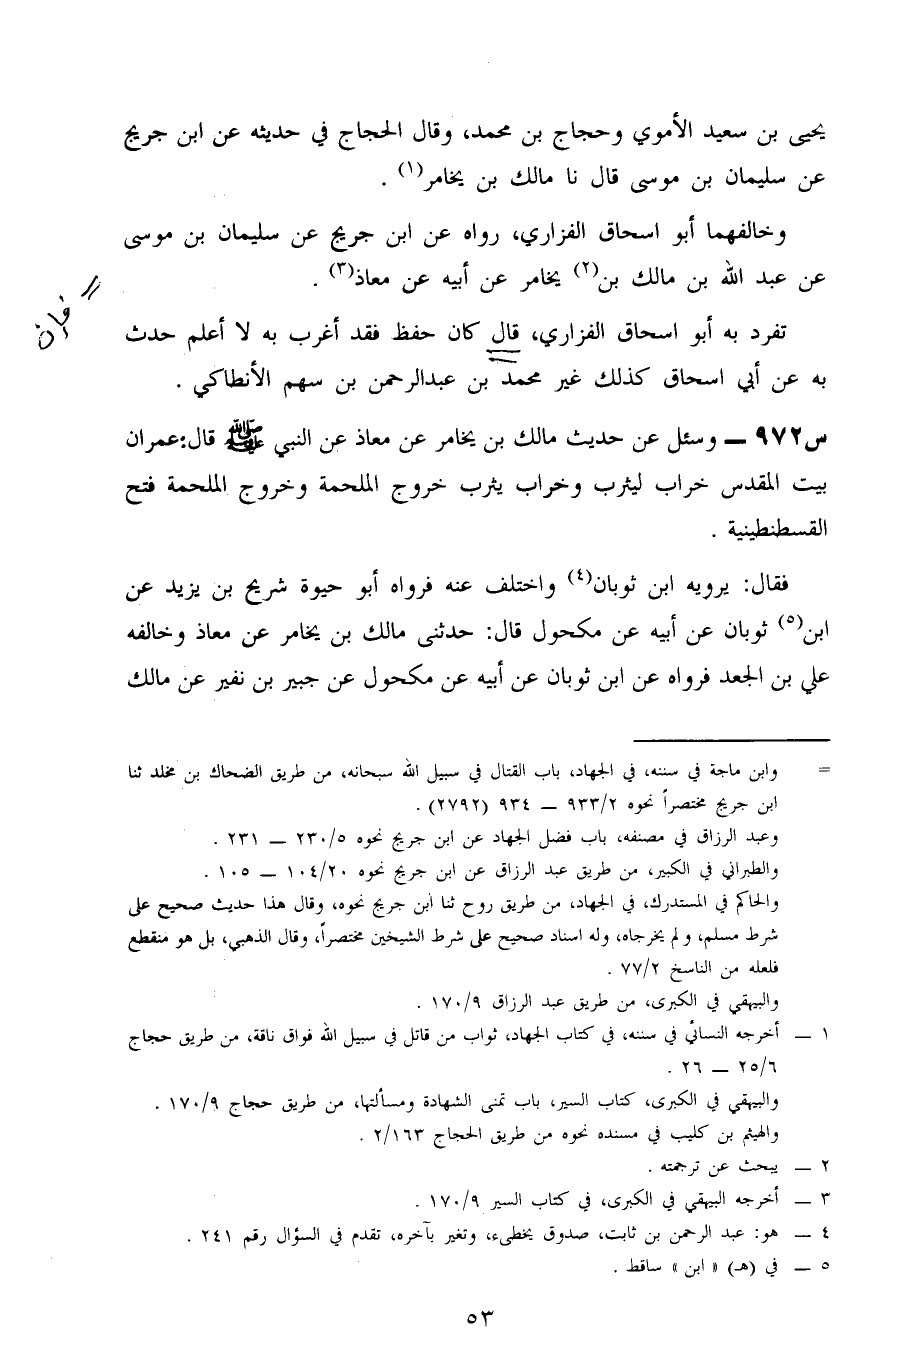 يحيى بن سعيد الأموي وحجاج بن محمد، وقال الحجاج في حديثه عن ابن جريج
عن سليمان بن موسى قال نا مالك بن يخامر(١) .
وخالفهما أبو اسحاق الفزاري، رواه عن ابن جريج عن سليمان بن موسى
عن عبد الله بن مالك بن(٢) يخامر عن أبيه عن معاذ(٣) .
تفرد به أبو اسحاق الفزاري، قال كان حفظ فقد أغرب به لا أعلم حدث
فإن
به عن أبي اسحاق كذلك غير محمد بن عبدالرحمن بن سهم الأنطاكي .
س٩٧٢ ــ وسئل عن حديث مالك بن يخامر عن معاذ عن النبي ﷺ قال: عمران
بيت المقدس خراب ليثرب وخراب يثرب خروج الملحمة وخروج الملحمة فتح
القسطنطينية .
فقال: يرويه ابن ثوبان(٤) واختلف عنه فرواه أبو حيوة شريح بن يزيد عن
ابن(٥) ثوبان عن أبيه عن مكحول قال: حدثنى مالك بن يخامر عن معاذ وخالفه
علي بن الجعد فرواه عن ابن ثوبان عن أبيه عن مكحول عن جبير بن نفير عن مالك
= وابن ماجة في سننه، في الجهاد، باب القتال في سبيل الله سبحانه، من طريق الضحاك بن مخلد ثنا
ابن جريج مختصراً نحوه ٩٣٣/٢ ــ ٩٣٤ (٢٧٩٢) .
وعبد الرزاق في مصنفه، باب فضل الجهاد عن ابن جريج نحوه ٢٣٠/٥ ــ ٢٣١ .
والطبراني في الكبير، من طريق عبد الرزاق عن ابن جريج نحوه ١٠٤/٢٠ ــ ١٠٥ .
والحاكم في المستدرك، في الجهاد، من طريق روح ثنا ابن جريج نحوه، وقال هذا حديث صحيح على
شرط مسلم، ولم يخرجاه، وله اسناد صحيح على شرط الشيخين مختصراً، وقال الذهبي، بل هو منقطع
فلعله من الناسخ ٧٧/٢ .
والبيهقي في الكبرى، من طريق عبد الرزاق ١٧٠/٩ .
١ ــ أخرجه النسائي في سننه، في كتاب الجهاد، ثواب من قاتل في سبيل الله فواق ناقة، من طريق حجاج
٢٥/٦ ــ ٢٦ .
والبيهقي في الكبرى، كتاب السير، باب تمنى الشهادة ومسألتها، من طريق حجاج ١٧٠/٩ .
والهيثم بن كليب في مسنده نحوه من طريق الحجاج ٢/١٦٣ .
٢ ــ يبحث عن ترجمته .
٣ ــ أخرجه البيهقي في الكبرى، في كتاب السير ١٧٠/٩ .
٤ ــ هو: عبد الرحمن بن ثابت، صدوق يخطىء، وتغير بآخره، تقدم في السؤال رقم ٢٤١ .
٥ ــ في (هـ) « ابن » ساقط .
٥٣